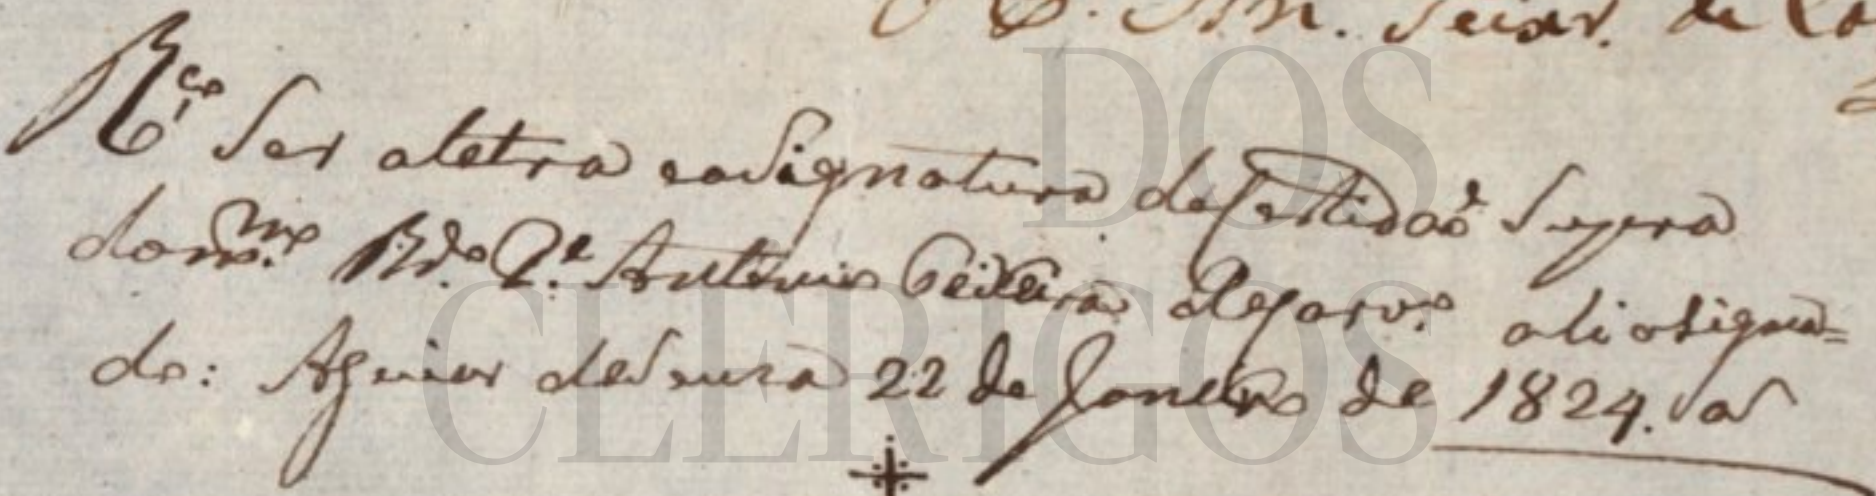 O P. Ant. Teixr. de Ca
Rco. Ser aletra easignatura deCertidaõ Supra
dommo. Rdo. Pe. Antonio Teixeira deCarvo. ali asigna=
do: Aguiar deSousa 22 de Janeiro de 1824.
DOS
CLERIGOS